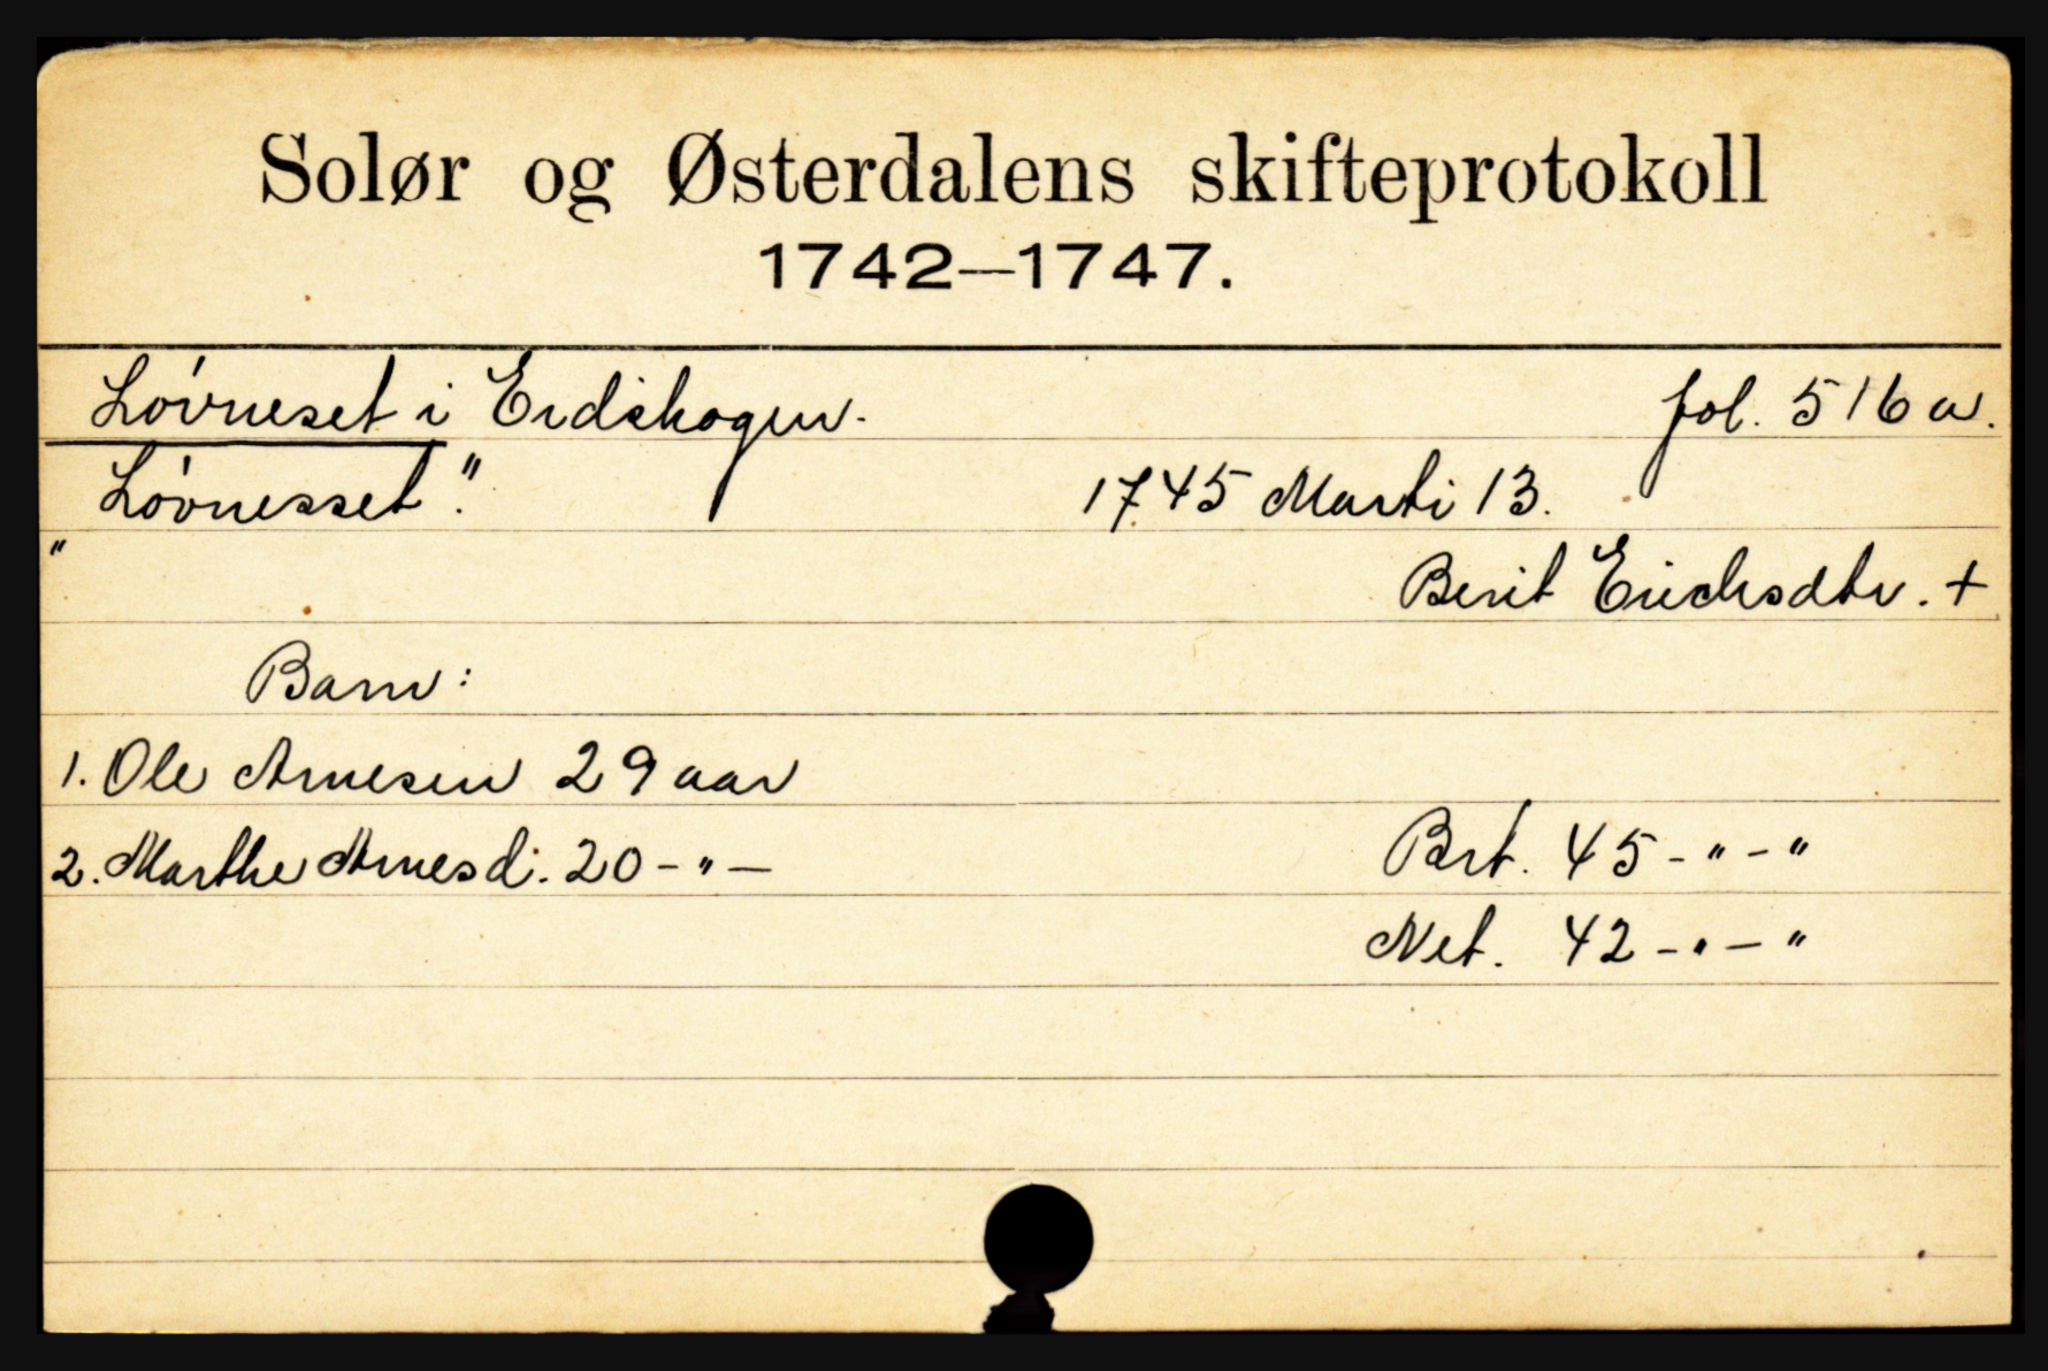 Solør og Østerdalens skifteprotokoll
1742—1747.
Lóvneset i Eidskogen. fol. 516 a.
"Lóvnesset". 1745 Marti 13.
Berit Erichsdtr. +
Barn:
1. Ole Arnesen 29 aar
2. Marthe Arnesd. 20 - " - Brt. 45 - " - "
Net. 42 - " - "